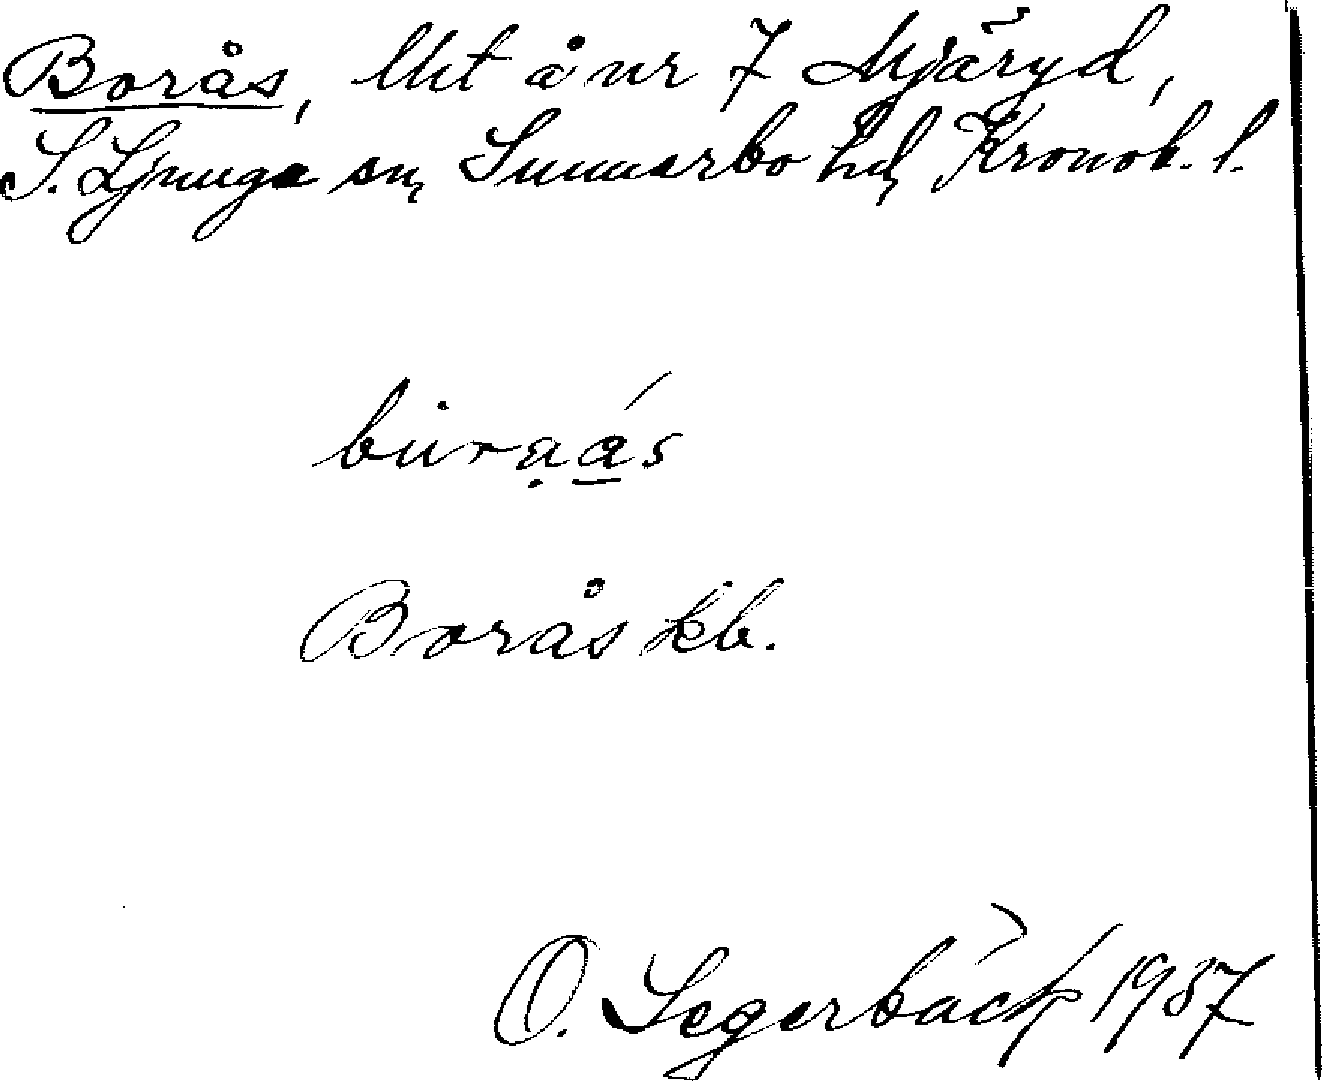 Borås, lht å nr 7 Mjäryd,
S. Ljunga sn, Sunnerbo hd, Kronob. l.
Borås kb.
O. Segerbäck 1937